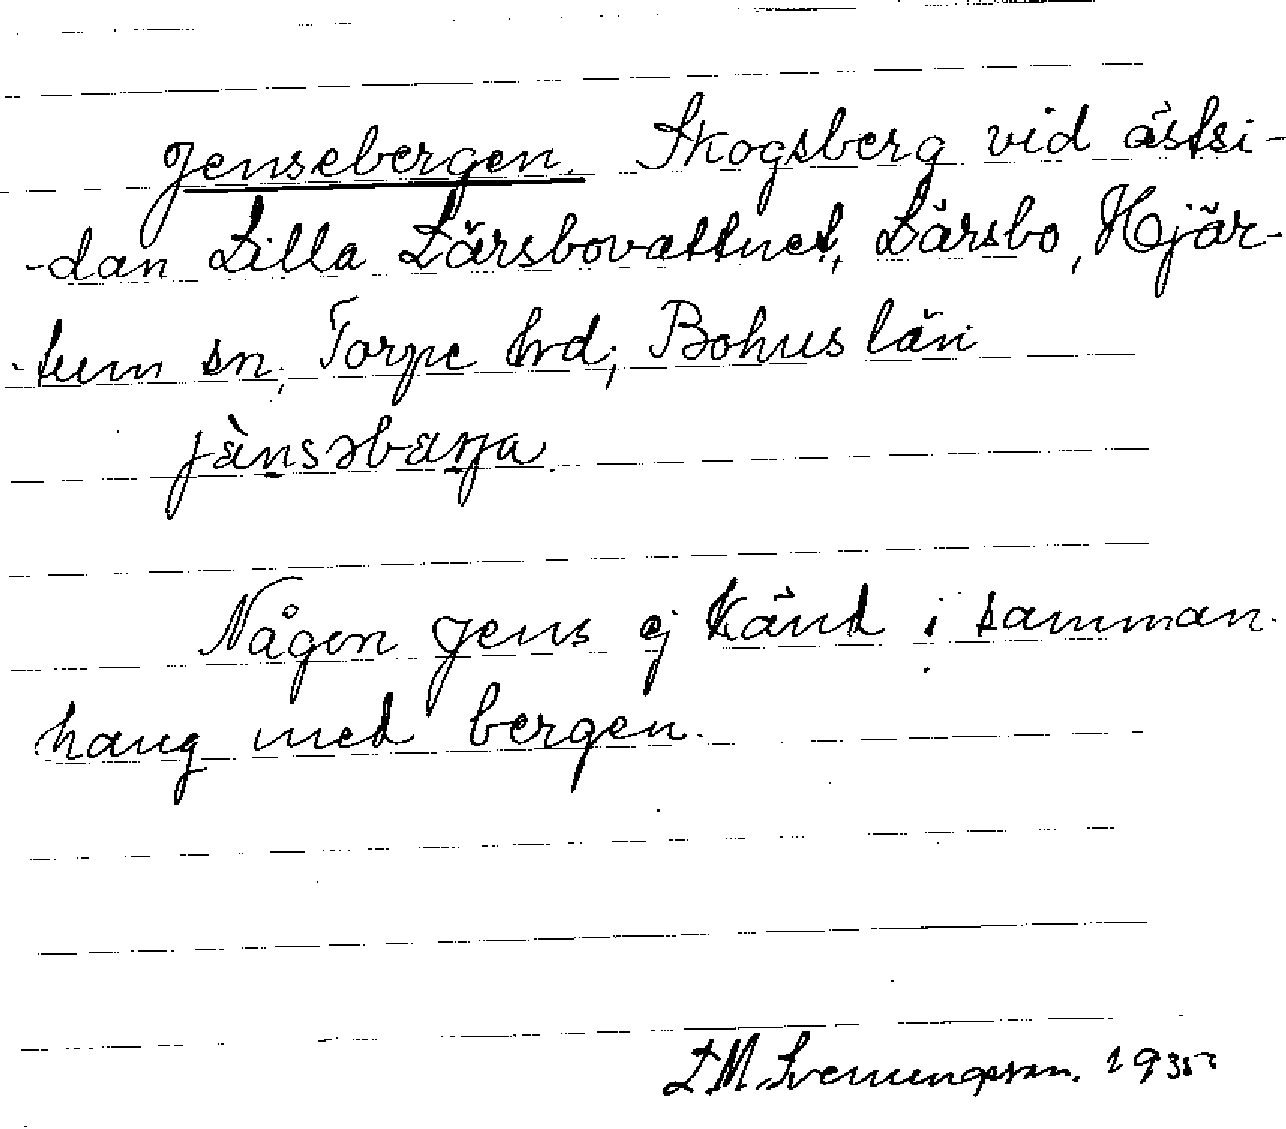 Jensebergen. Skogsberg vid östsi-
-dan Lilla Lärsbovattnet, Lärsbo, Hjär-
-tum sn, Torpe hrd, Bohus län
jànsəbærja
Någon Jens ej känd i samman-
hang med bergen.
L M Svenungsson. 1935